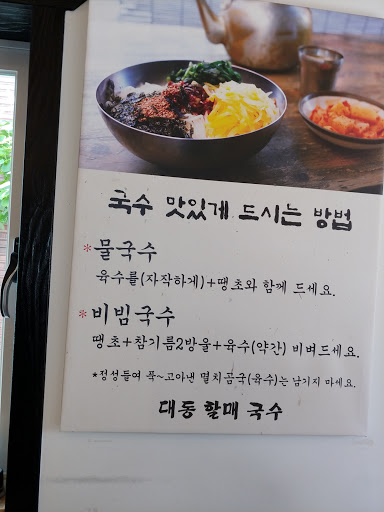 국수 맛있게 드시는 방법
*물국수
육수를(자작하게)+땡초와 함께 드세요.
*비빔국수
땡초+참기름2방울+육수(약간) 비벼드세요.
*정성들여 푹~고아낸 멸치곰국(육수)는 남기지 마세요.
대동 할매 국수